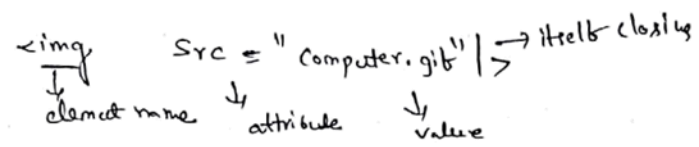 <img src = "computer.gif" /> → itself closing
element name
attribute
value